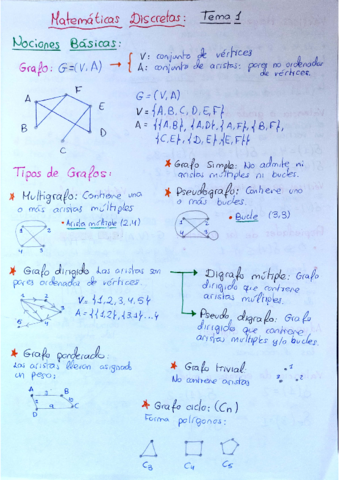 Matemáticas Discretas: Tema 1
Nociones Básicas:
Grafo: G=(V,A) → { V: conjunto de vértices
A: conjunto de aristas: pares no ordenados
de vértices.
A
F
E
B
D
C
G = (V,A)
V = {A,B,C,D,E,F}
A = {{A,B}, {A,D}, {A,F}, {B,F},
{C,E}, {D,E}, {E,F}}
Tipos de Grafos:
Grafo Simple: No admite ni
aristas múltiples ni bucles.
Multigrafo: Contiene una
o más aristas múltiples
Arista múltiple (2,4)
Pseudografo: Contiene uno
o más bucles.
Bucle (3,3)
Grafo dirigido Las aristas son
pares ordenados de vértices.
V = {1,2,3,4,5}
A = {(1,2), (3,1)...}
Digrafo múltiple: Grafo
dirigido que contiene
aristas múltiples.
Pseudo digrafo: Grafo
dirigido que contiene
aristas múltiples y/o bucles.
Grafo ponderado:
Las aristas llevan asignado
un peso:
A
B
C
D
Grafo trivial
No contiene aristas
Grafo ciclo: (Cn)
Forma polígonos:
C3 C4 C5